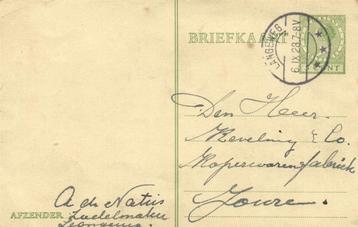 BRIEFKAART
LANGEWEG
6.IX.28.7-8V
CENT
Den Heer
Keveling & Co.
Koperwarenfabriek
Joure.
A de Natris
AFZENDER Zadelmaker